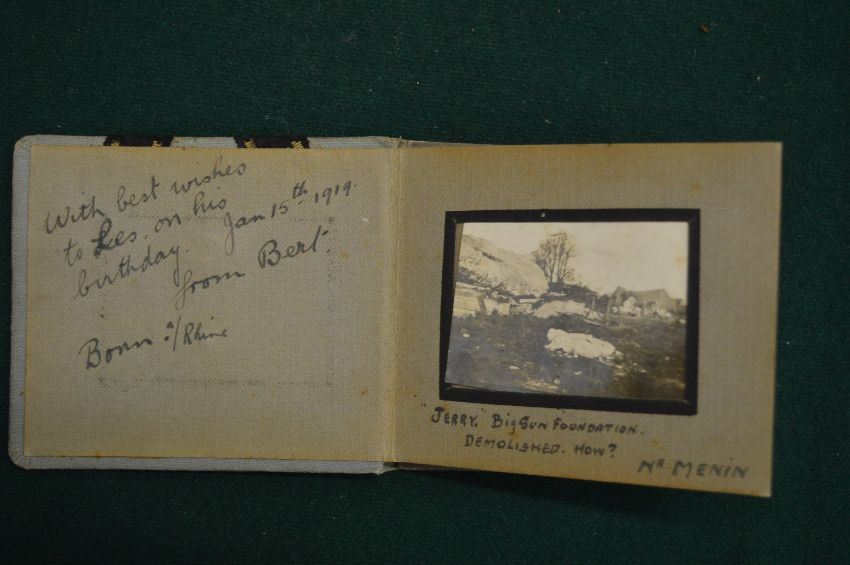 With best wishes
to Les. on his
birthday. Jan 15th 1919.
from Bert.
Bonn a/Rhine
"JERRY." BiG GUN FOUNDATION.
DEMOLISHED. HOW?
NR MENIN